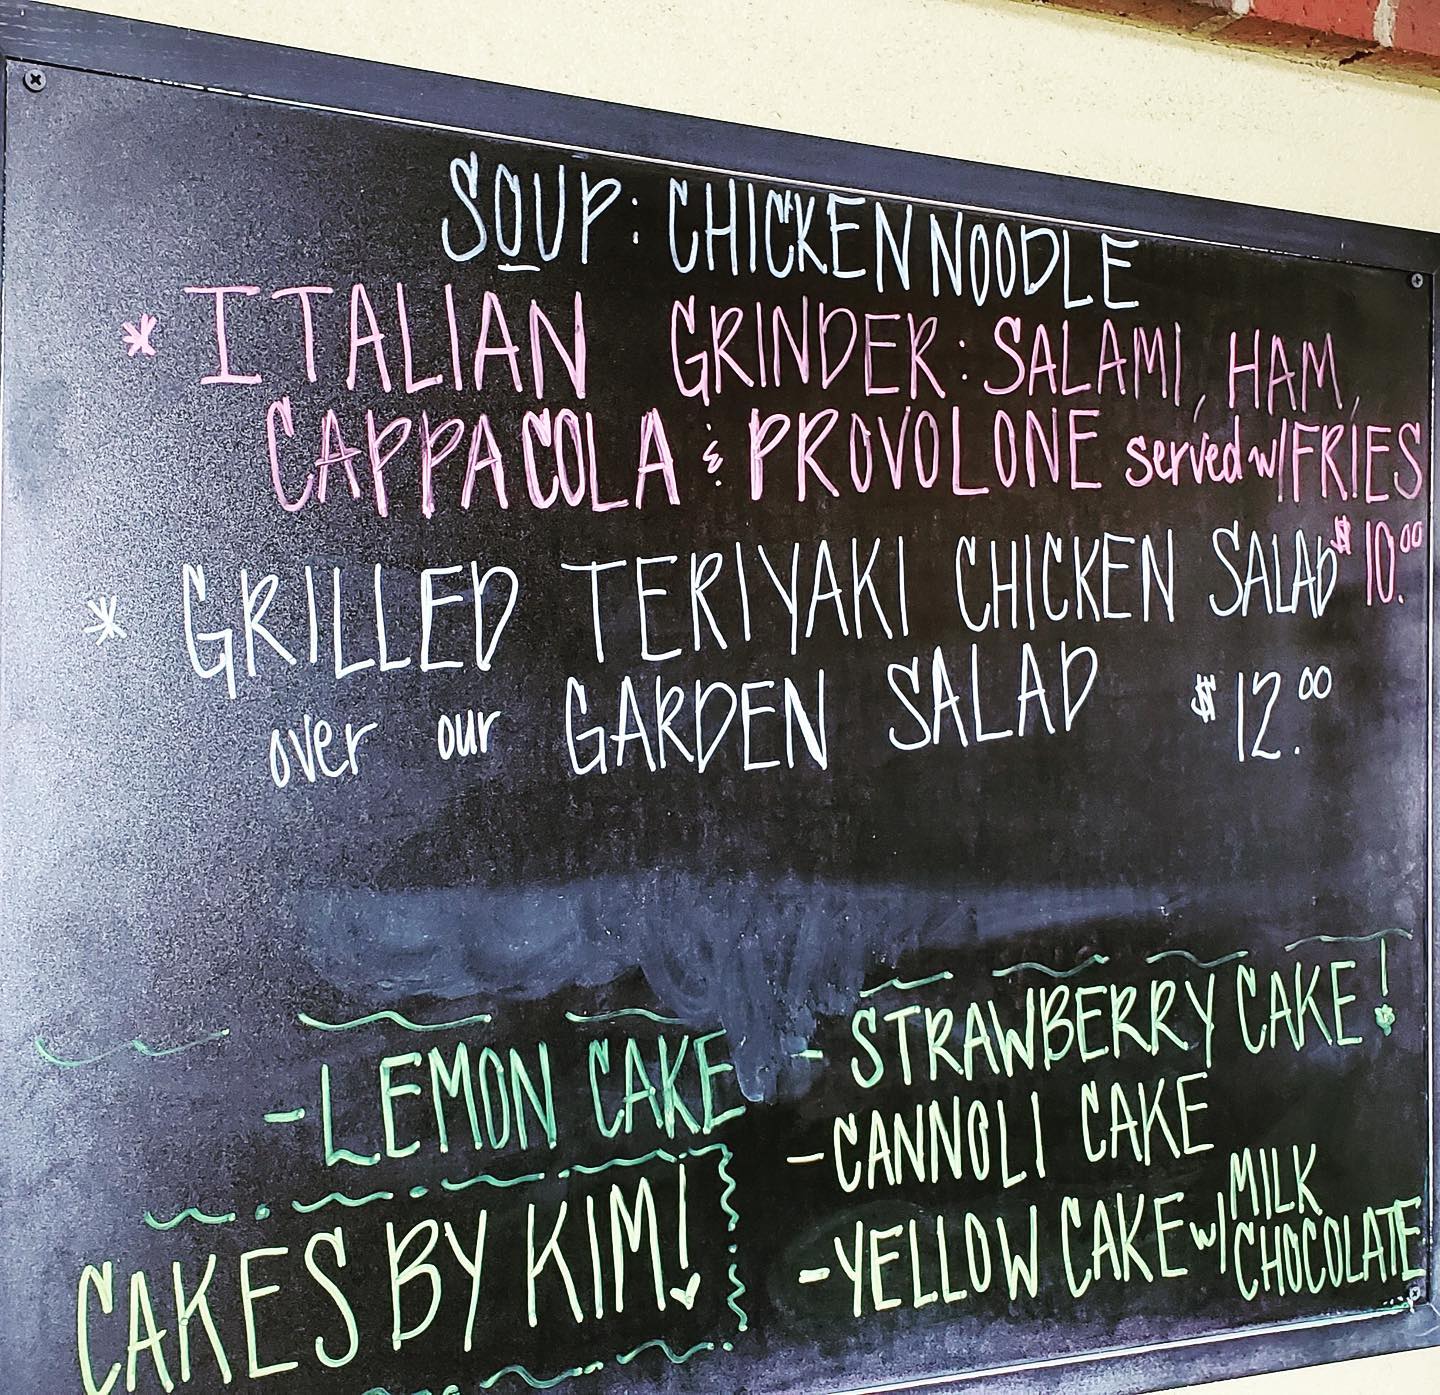 SOUP: CHICKEN NOODLE
* ITALIAN GRINDER: SALAMI, HAM,
CAPPACOLA & PROVOLONE served w/ FRIES
$10.00
* GRILLED TERIYAKI CHICKEN SALAD
over our GARDEN SALAD $12.00
- LEMON CAKE
CAKES BY KIM!
- STRAWBERRY CAKE!
- CANNOLI CAKE
- YELLOW CAKE w/ MILK
CHOCOLATE